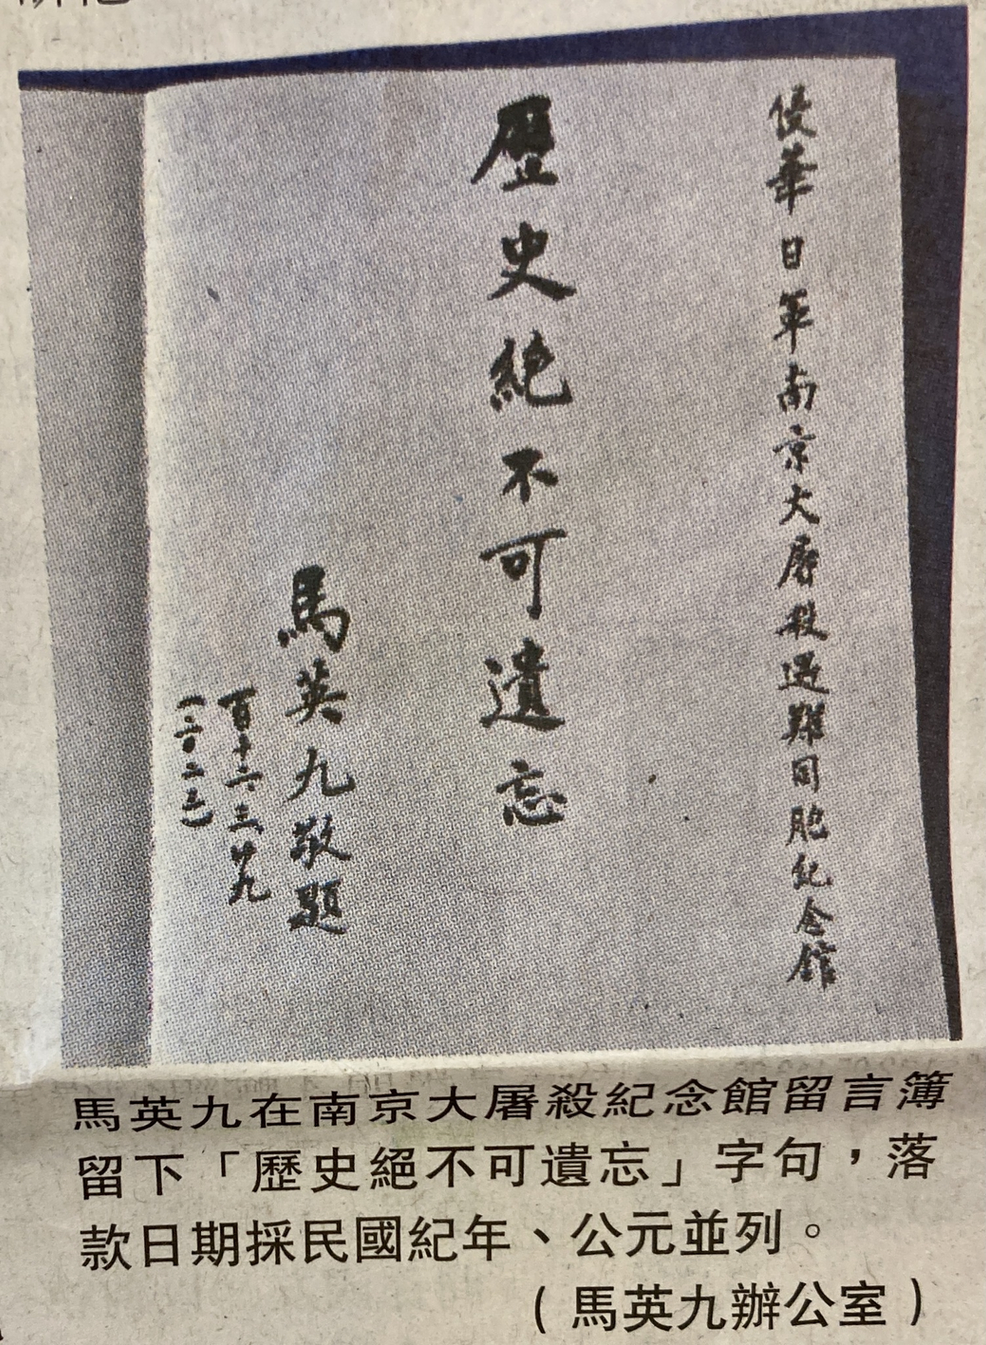 侵華日軍南京大屠殺遇難同胞紀念館
歷史絕不可遺忘
馬英九敬題
百十二、三、廿九
(二〇二三)
馬英九在南京大屠殺紀念館留言簿
留下「歷史絕不可遺忘」字句，落
款日期採民國紀年、公元並列。
(馬英九辦公室)